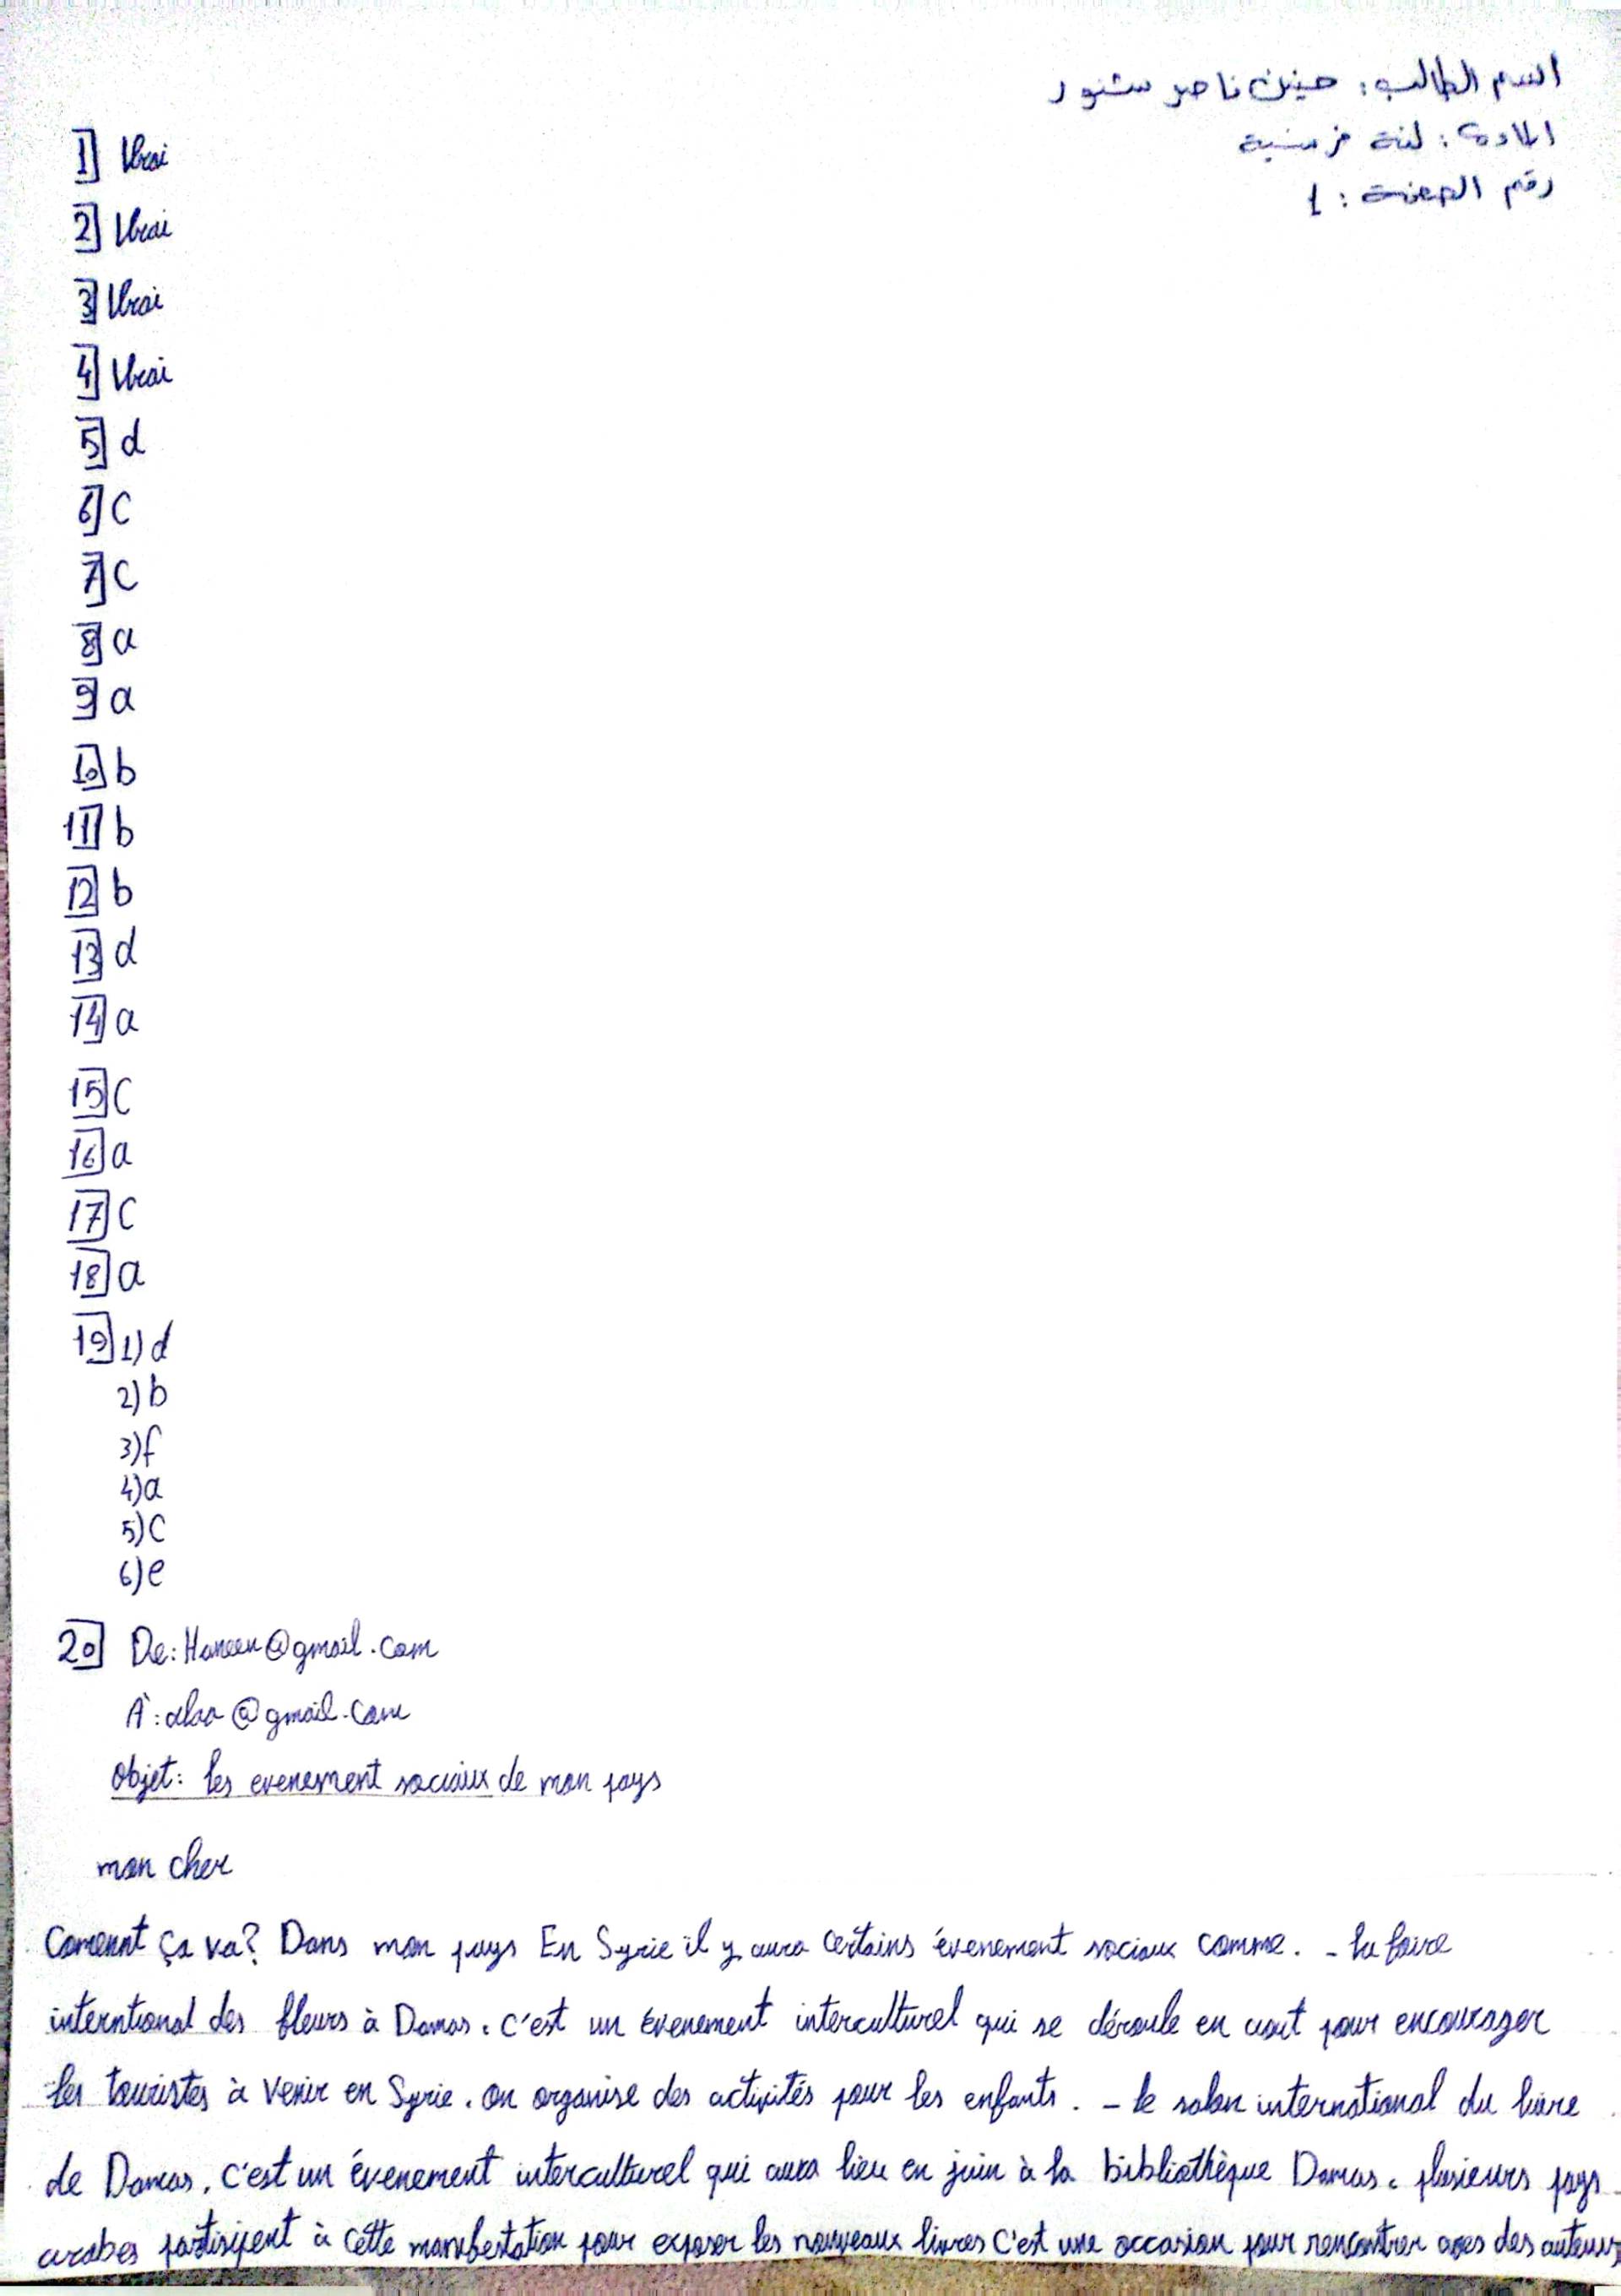 اسم الطالب: حنين ناصر سنور
المادة: لغة فرنسية
رقم الصفحة: 1
1] Vrai
2] Vrai
3] Vrai
4] Vrai
5] d
6] C
7] C
8] a
9] a
10] b
11] b
12] b
13] d
14] a
15] C
16] a
17] C
18] a
19] 1) d
2) b
3) f
4) a
5) C
6) e
20] De: Haneen@gmail.com
À: alaa@gmail.com
objet: les evenement sociaux de mon pays
mon cher
Comennt ça va? Dans mon pays En Syrie il y aura certains évenement sociaux comme. - la foire
interntional des fleurs à Damas. C'est un évenement interculturel qui se déroule en aout pour encourager
les touristes à venir en Syrie. on organise des activités pour les enfants. - le salon international du livre
de Damas. C'est un évenement interculturel qui aura lieu en juin à la bibliothèque Damas. plusieurs pays
arabes partisipent à cette manifestation pour exposer les nouveaux livres C'est une occasion pour rencontrer avec des auteurs